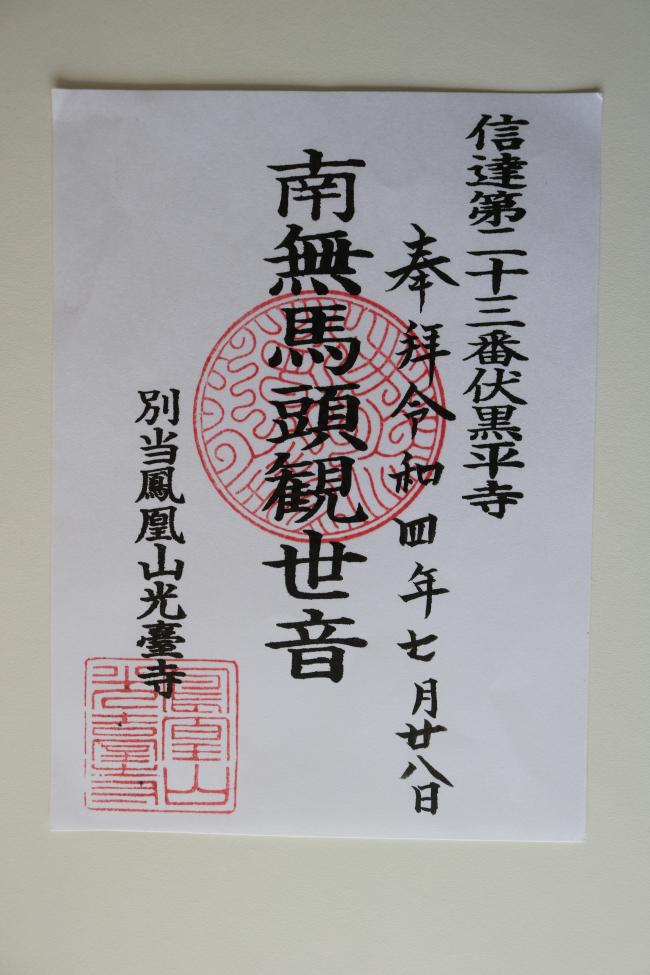 信達第二十三番伏黒平寺
奉拜令和四年七月廿八日
南無馬頭観世音
別当鳳凰山光臺寺
鳳凰山
光臺寺